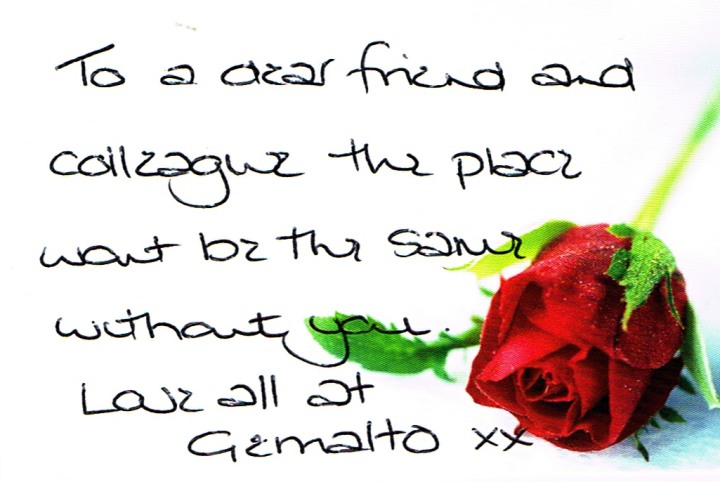 To a dear friend and
colleague the place
wont be the same
without you.
Love all at
Gemalto xx